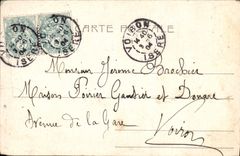 CARTE POSTALE
VOIRON
ISERE
VOIRON
ISERE
Monsieur Jerome Brochier
Maison Poirier Gautier et
Avenue de la Gare
Voiron